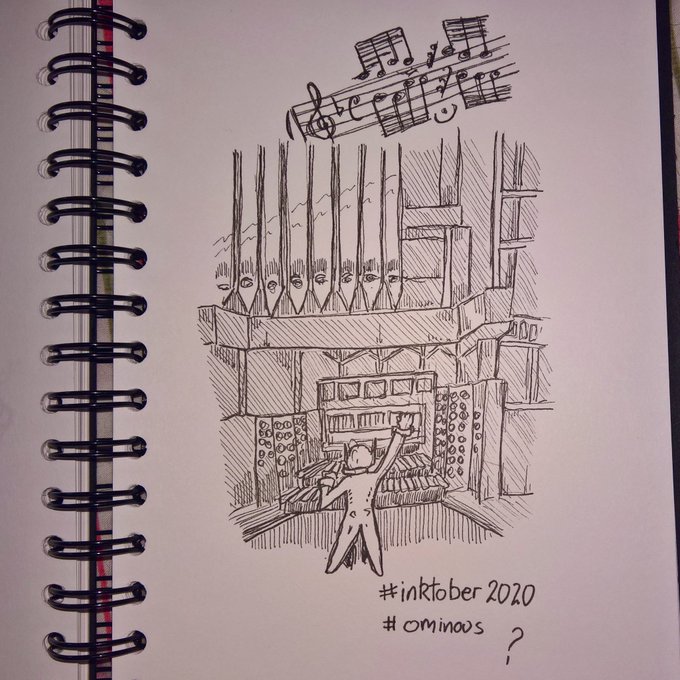 #inktober 2020
#ominous
?